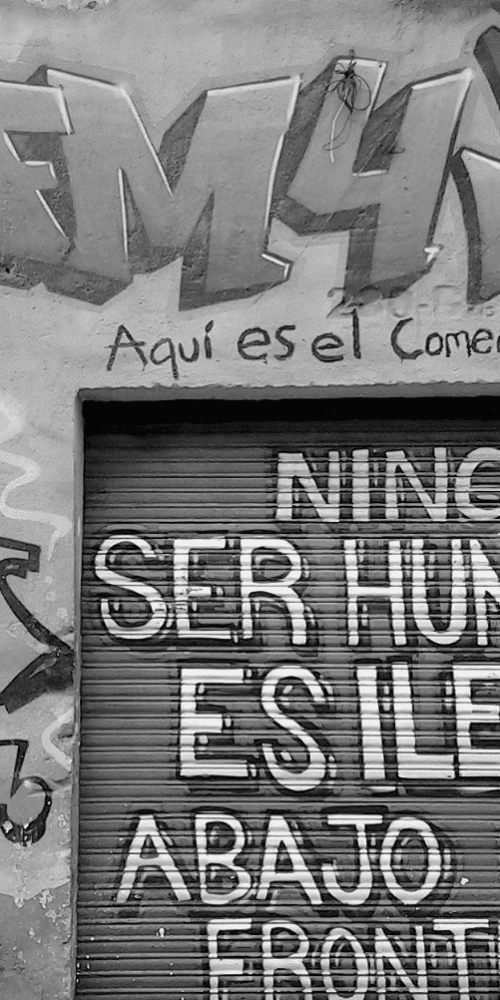 EM4
Aquí es el Come
NING
SER HUM
ES ILE
ABAJO
FRONT